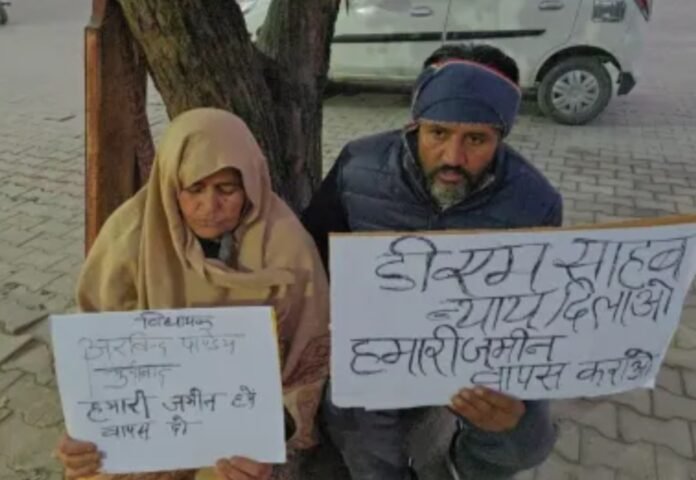 विधायक
अरविन्द पाण्डेय
मुर्दाबाद
हमारी जमीन हमें
वापस दो
डीएम साहब
न्याय दिलाओ
हमारी जमीन
वापस कराओ